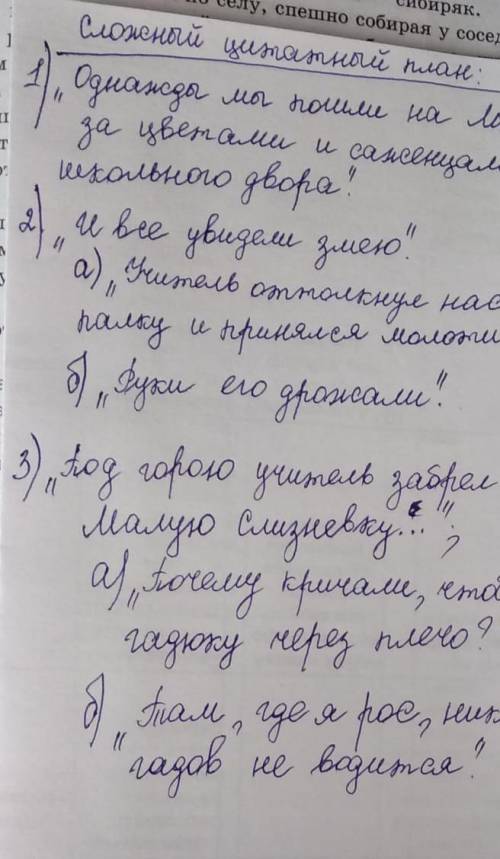 селу, спешно собирая у сосед
сибиряк.
Сложный цитатный план:
1) „Однажды мы пошли на
за цветами и саженцам
школьного двора".
2) „И все увидели змею".
а) „Учитель оттолкнул нас
палку и принялся молоти
б) „Руки его дрожали".
3) „Под горою учитель забрел
Малую Слизневку..."
а) „Почему кричали, что
гадюку через плечо?
б) „Там, где я рос, ник
гадов не водится".